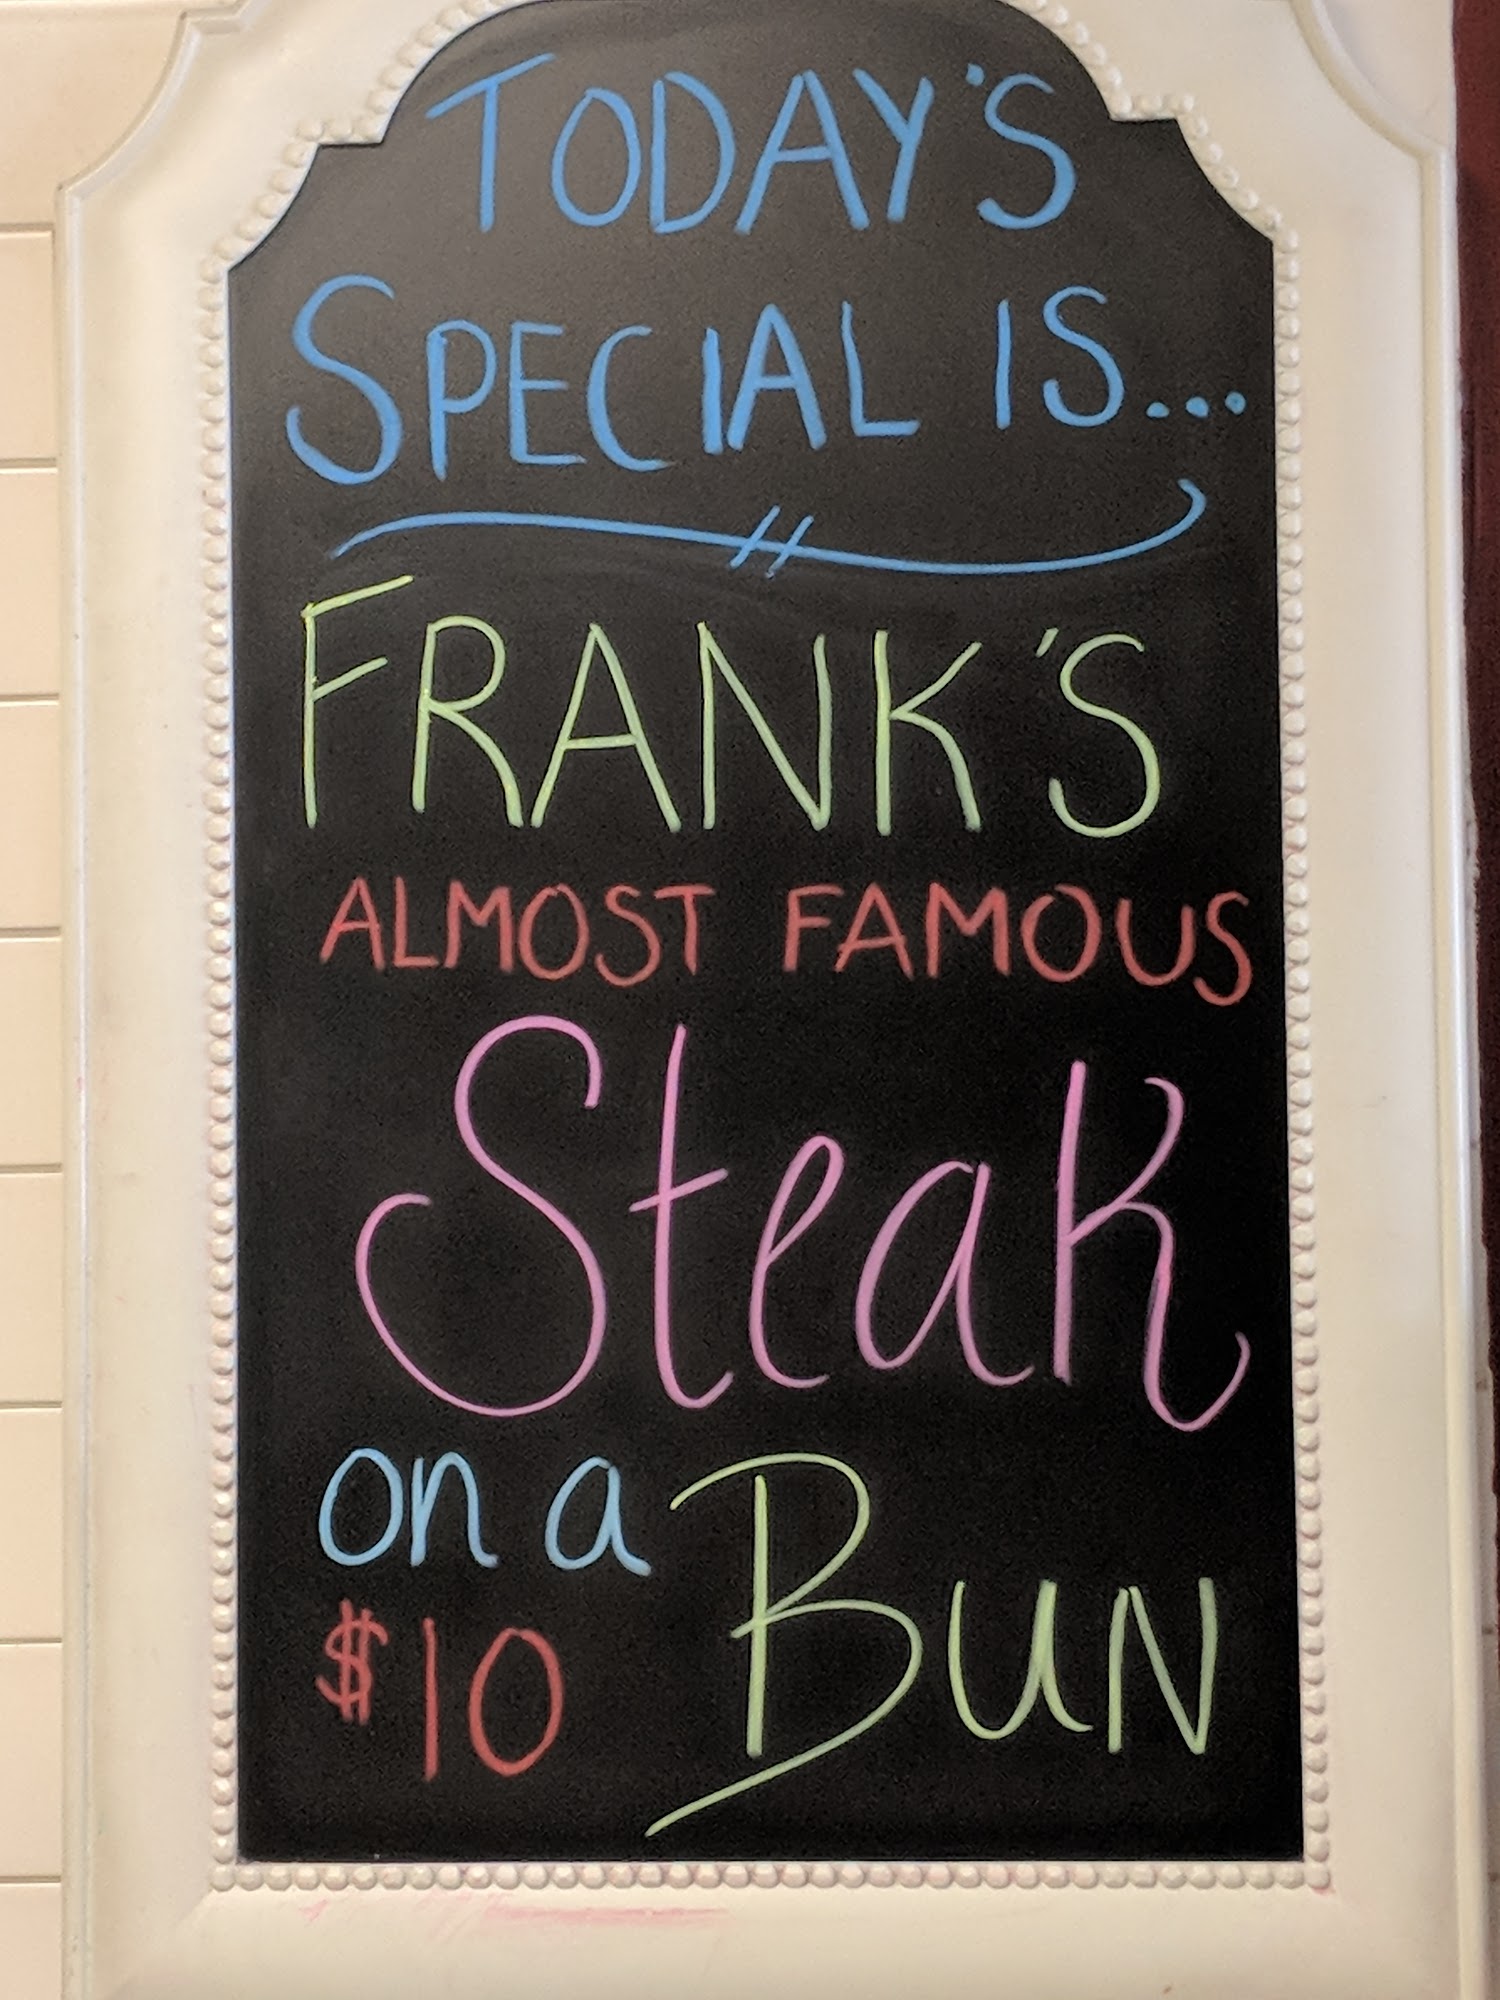 TODAY'S
SPECIAL IS...
FRANK'S
ALMOST FAMOUS
Steak
on a BUN
$10